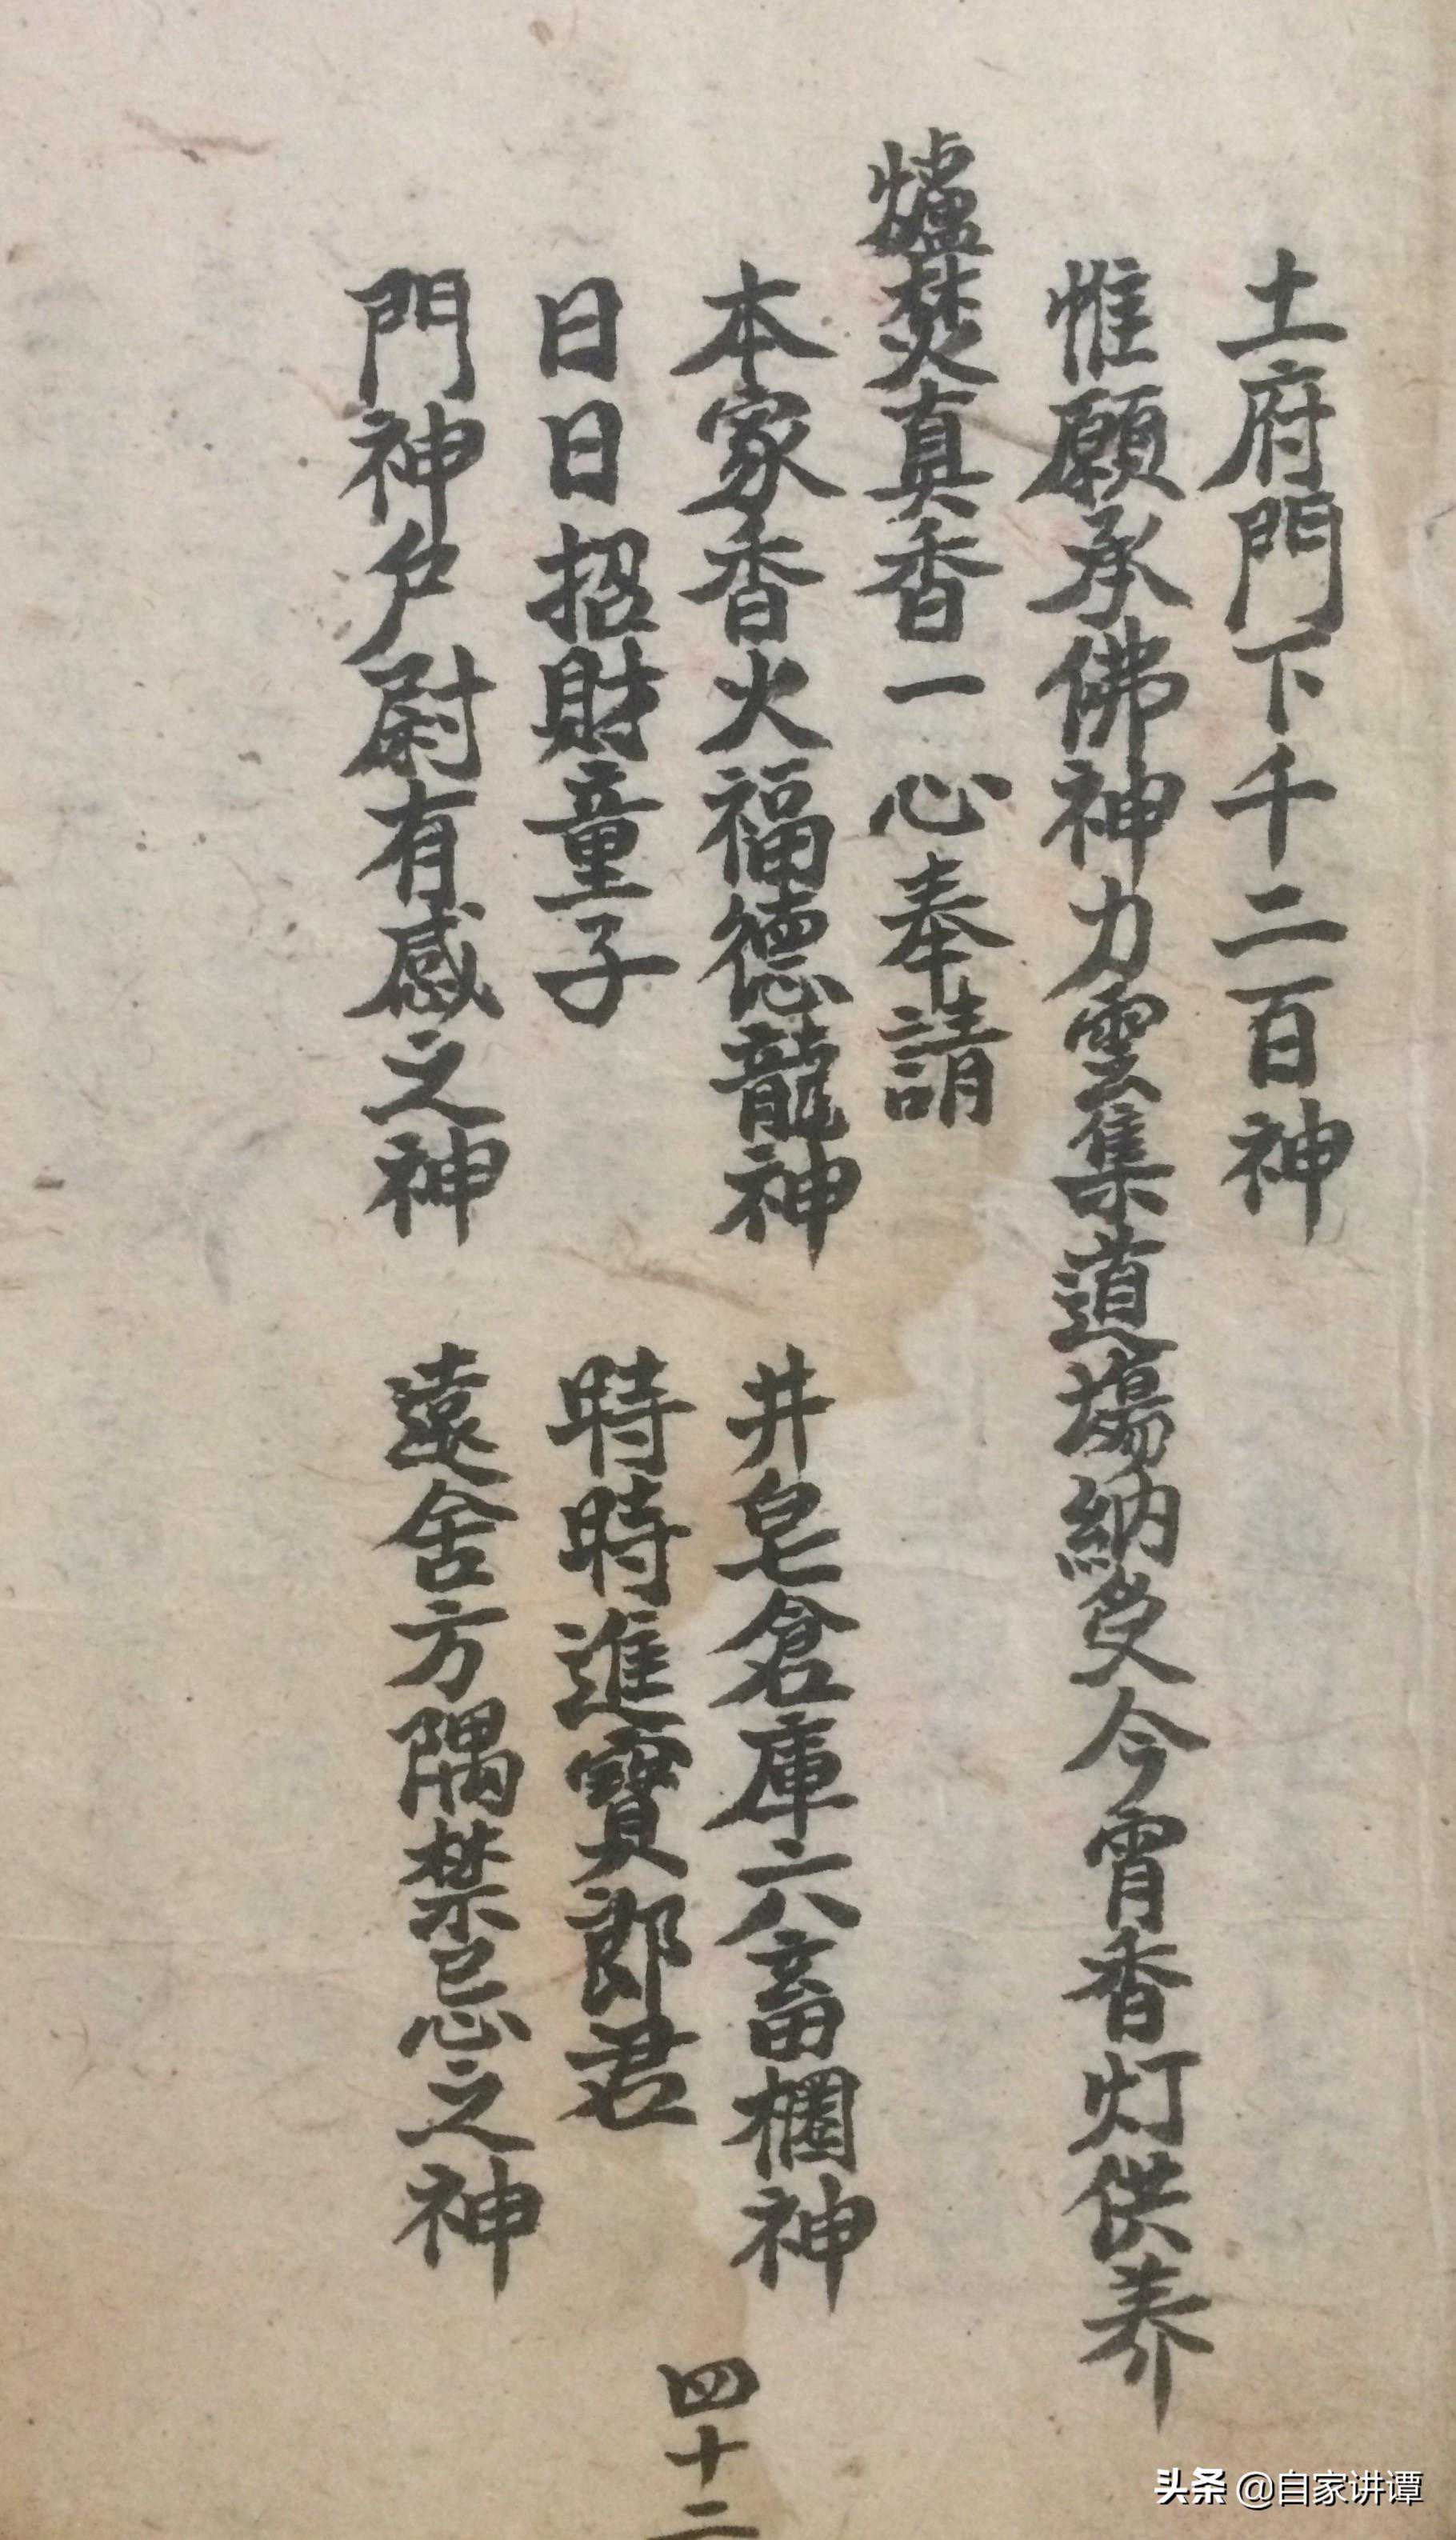 土府門下千二百神
惟願承佛神力雲集道場納受今宵香灯供养
爐焚真香一心奉請
本家香火福德龍神 井皂倉庫六畜欄神
日日招財童子 時時進寶郎君
門神户尉有感之神 遠舍方隅禁忌之神
四十二
头条 @自家讲谭